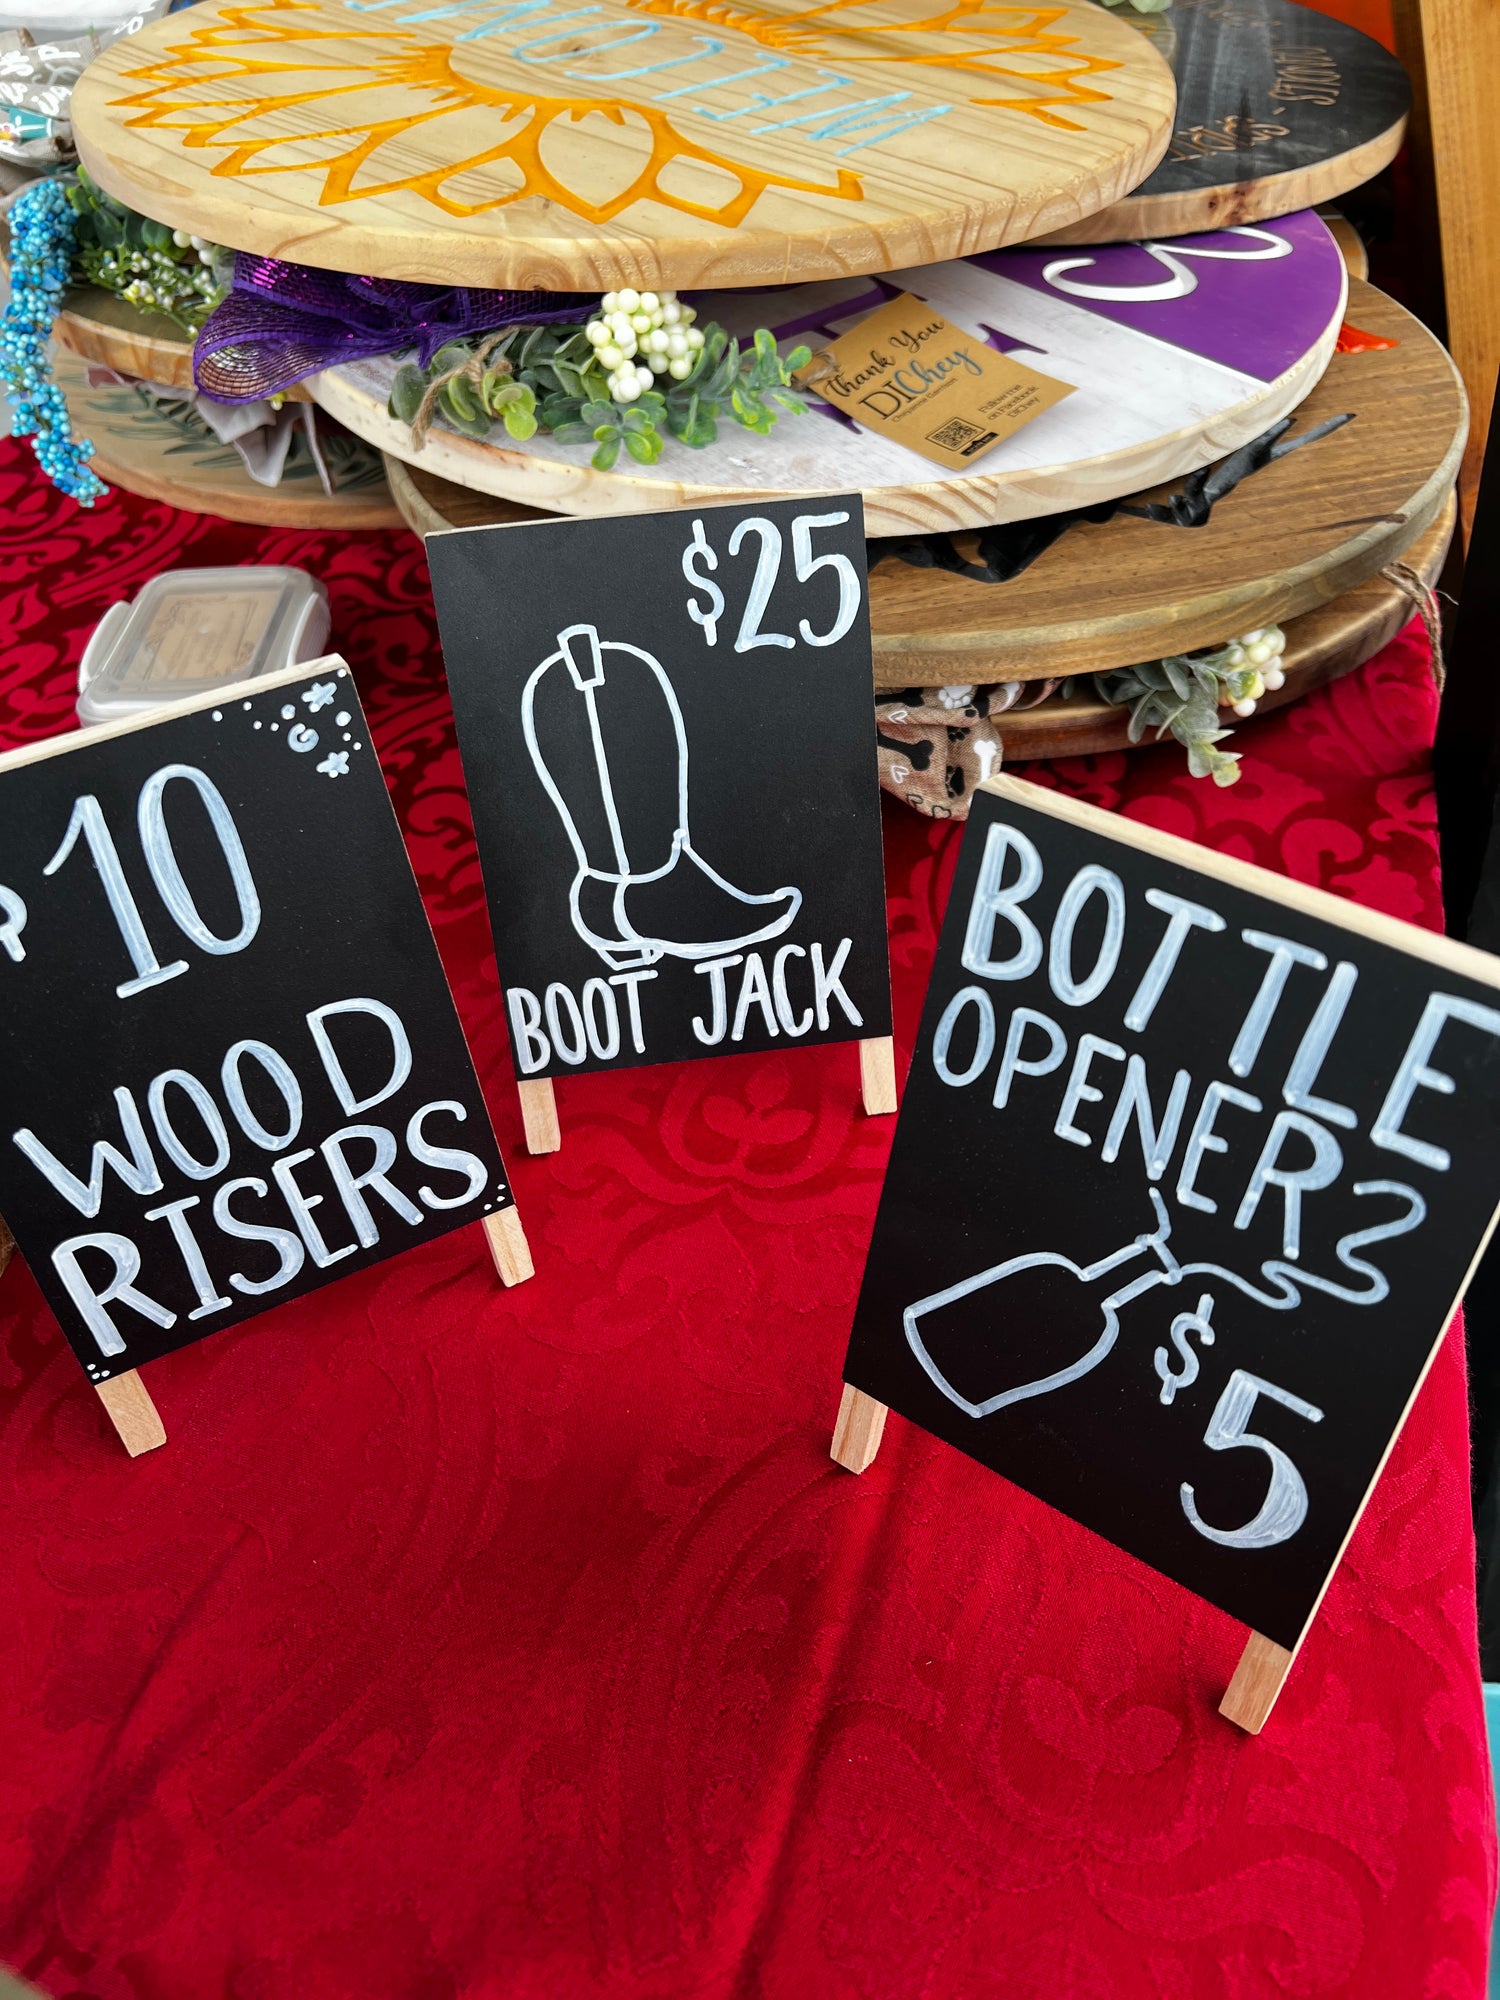 WELCOME
Thank You
DIChey
Follow me
on Facebook
DIChey
$25
BOOT JACK
$10
WOOD
RISERS
BOTTLE
OPENERS
$5